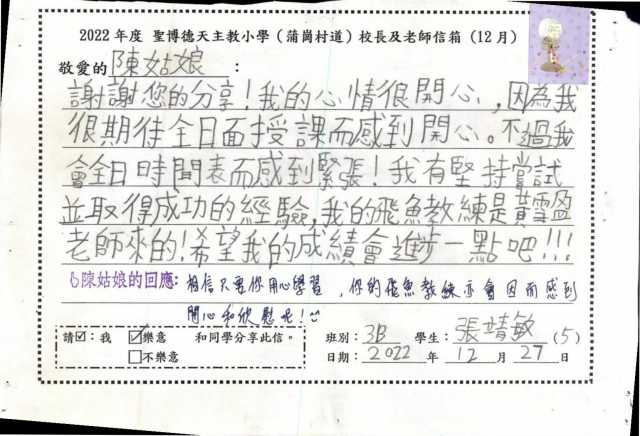 2022 年度 聖博德天主教小學（蒲崗村道）校長及老師信箱（12月）
敬愛的陳姑娘：
謝謝您的分享！我的心情很開心，因為我
很期待全日面授課而感到開心。不過我
會全日時間表而感到緊張！我有堅持嘗試
並取得成功的經驗，我的飛魚教練是黃雪盈
老師來的！希望我的成績會進步一點吧！！！
陳姑娘的回應：相信只要你用心學習，你的飛魚教練亦會因而感到
開心和欣慰呢！
請☑：我 ☑樂意 和同學分享此信。 班別：3B 學生：張靖敏 (5)
□不樂意 日期：2022 年 12 月 27 日